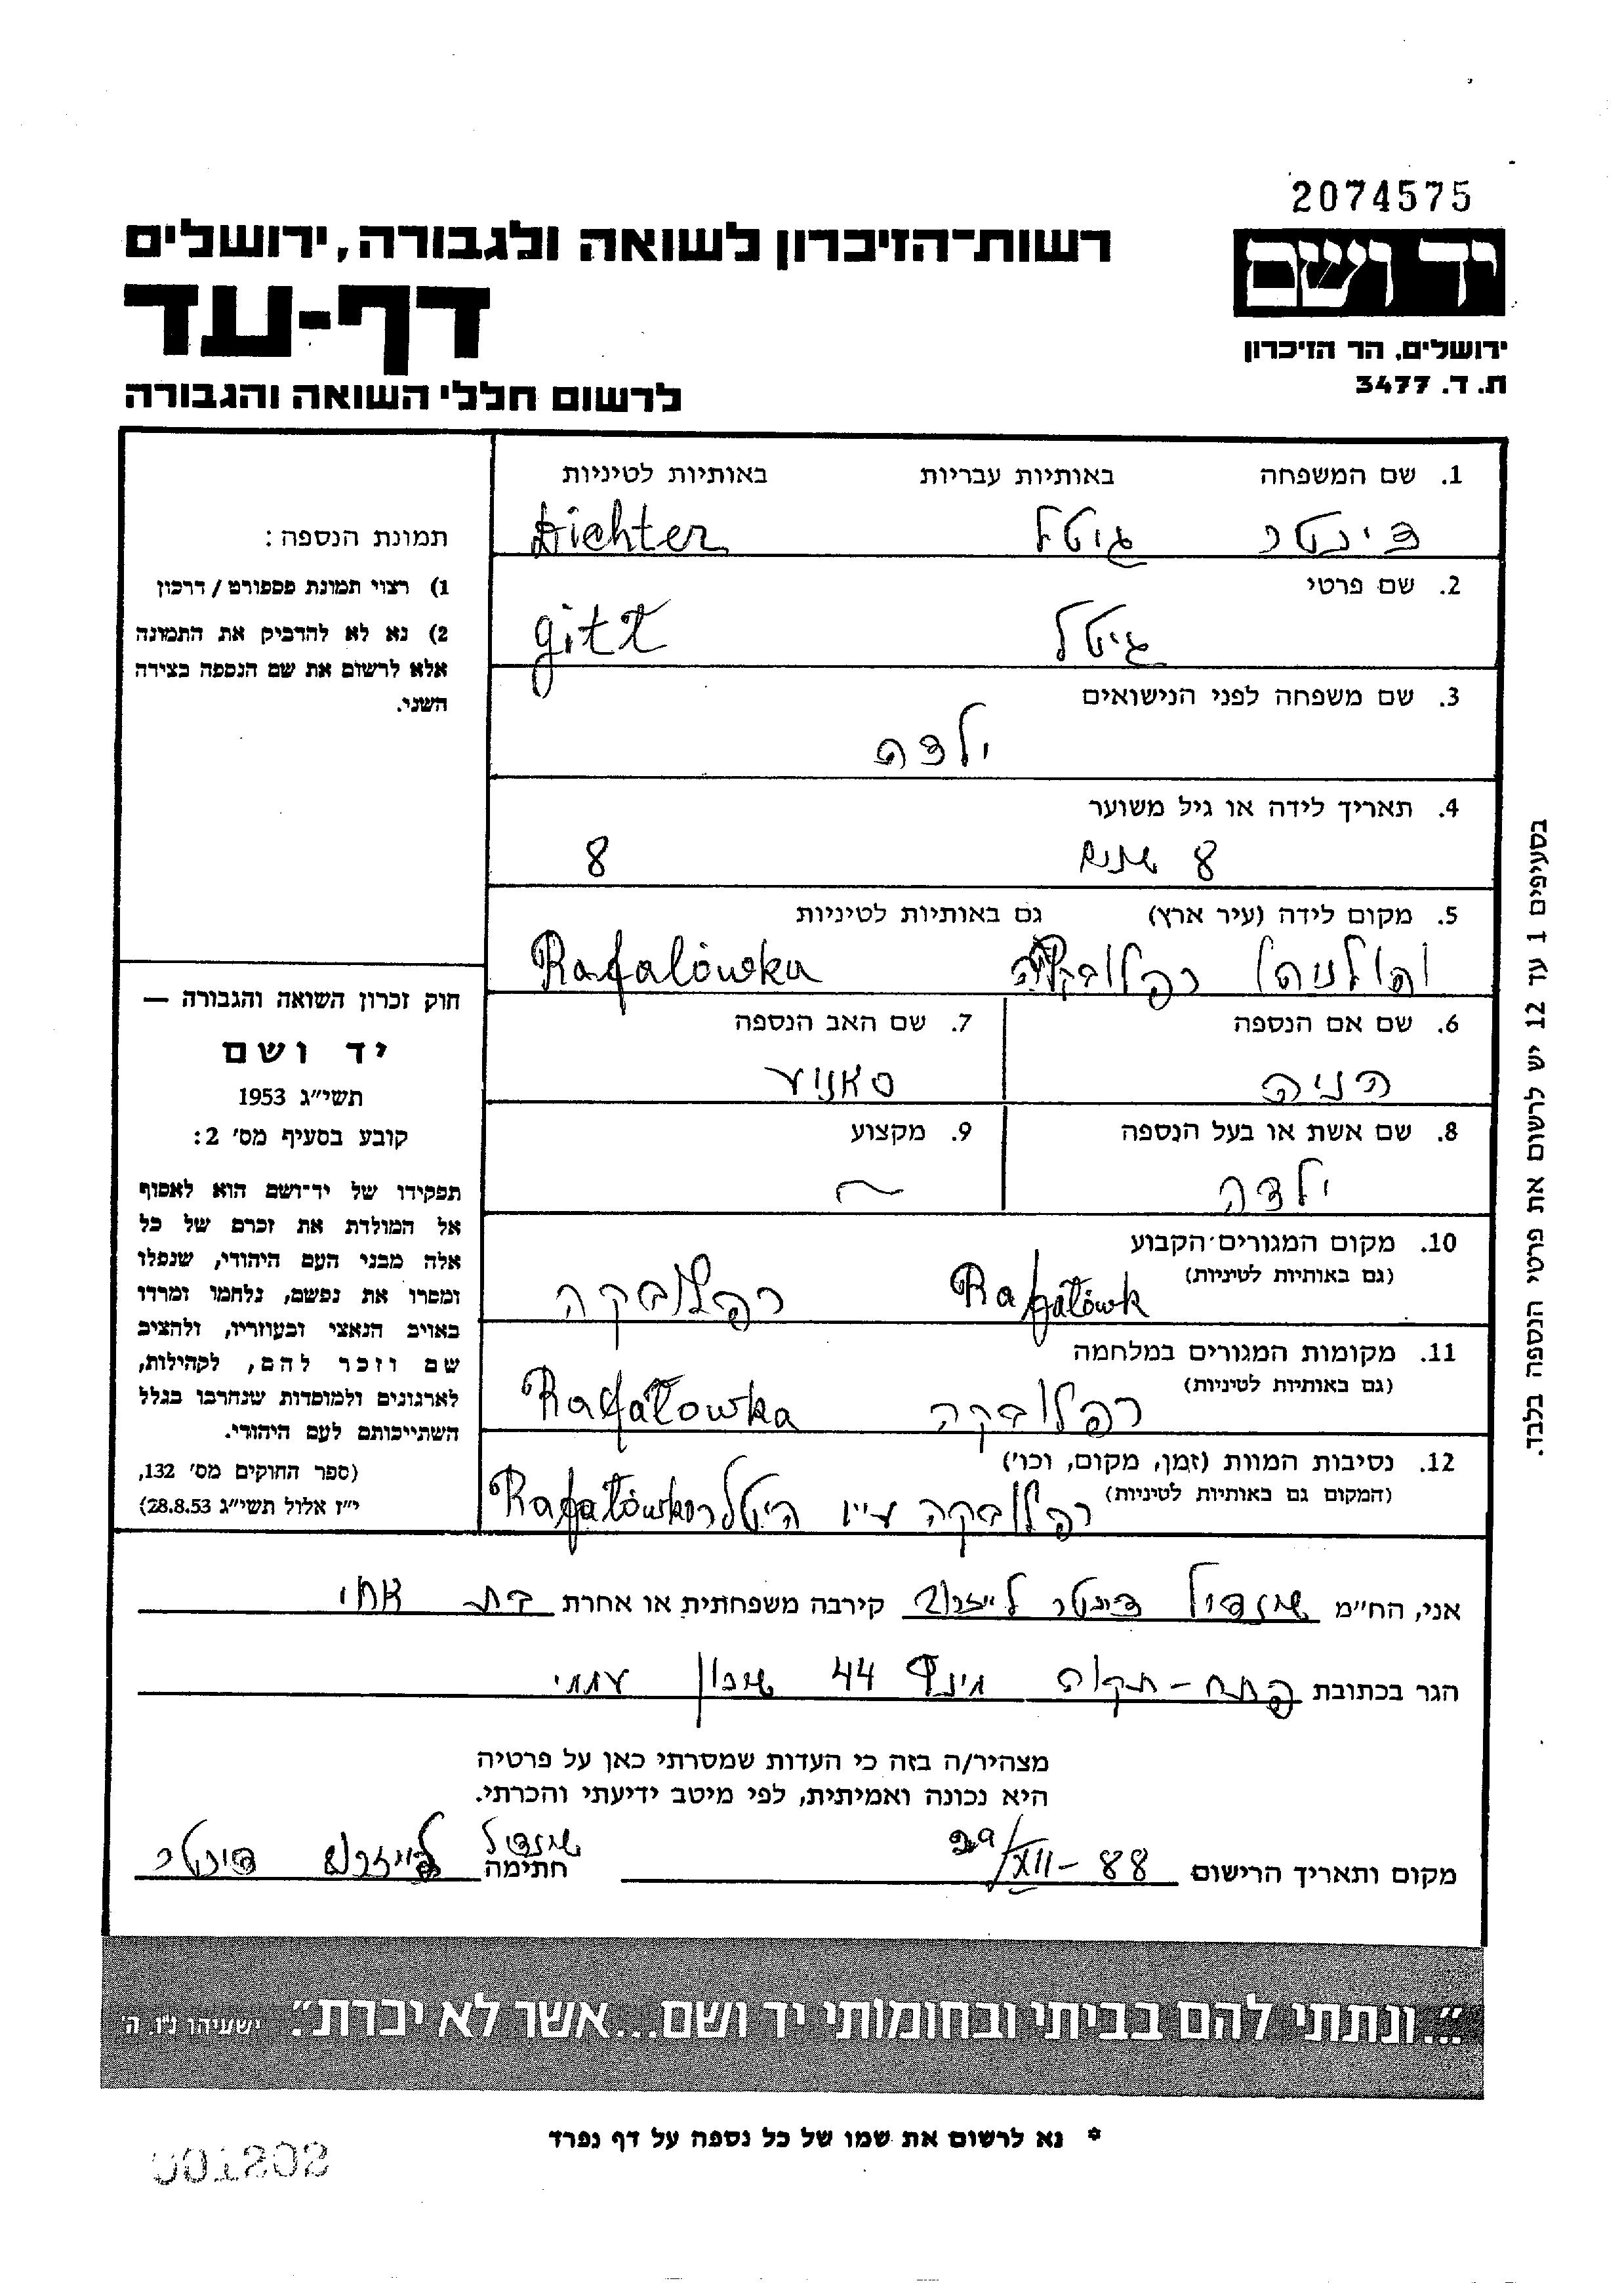 2074575
רשות־הזיכרון לשואה ולגבורה, ירושלים
יד ושם
דף-עד
ירושלים, הר הזיכרון
ת. ד. 3477
לרשום חללי השואה והגבורה
1. שם המשפחה באותיות עבריות באותיות לטיניות
דיכטר גיטל Dichter
2. שם פרטי
גיטל
3. שם משפחה לפני הנישואים
ילדה
4. תאריך לידה או גיל משוער
8 שנים 8
5. מקום לידה (עיר ארץ) גם באותיות לטיניות
רפלובקה Rafalówka
6. שם אם הנספה 7. שם האב הנספה
חניה סאניע
8. שם אשת או בעל הנספה 9. מקצוע
ילדה ~
10. מקום המגורים הקבוע
(גם באותיות לטיניות)
Rafałówk רפלובקה
11. מקומות המגורים במלחמה
(גם באותיות לטיניות)
רפלובקה Rafałowka
12. נסיבות המוות (זמן, מקום, וכו')
(המקום גם באותיות לטיניות)
רפלובקה ע״י היטלר Rafałówka
תמונת הנספה:
1) רצוי תמונת פספורט / דרכון
2) נא לא להדביק את התמונה
אלא לרשום את שם הנספה בצידה
השני.
חוק זכרון השואה והגבורה —
יד ושם
תשי״ג 1953
קובע בסעיף מס׳ 2:
תפקידו של יד־ושם הוא לאסוף
אל המולדת את זכרם של כל
אלה מבני העם היהודי, שנפלו
ומסרו את נפשם, נלחמו ומרדו
באויב הנאצי ובעוזריו, ולהציב
שם וזכר להם, לקהילות,
לארגונים ולמוסדות שנחרבו בגלל
השתייכותם לעם היהודי.
(ספר החוקים מס׳ 132,
י״ז אלול תשי״ג 28.8.53)
בסעיפים 1 עד 12 יש לרשום את פרטי הנספה בלבד.
אני, הח״מ דיכטר קירבה משפחתית או אחרת בת אחי
הגר בכתובת פתח-תקוה 44 שכון עממי
מצהיר/ה בזה כי העדות שמסרתי כאן על פרטיה
היא נכונה ואמיתית, לפי מיטב ידיעתי והכרתי.
מקום ותאריך הרישום 29/XII-88 חתימה דיכטר
"...ונתתי להם בביתי ובחומותי יד ושם...אשר לא יכרת". ישעיהו נ״ו. ה׳
* נא לרשום את שמו של כל נספה על דף נפרד